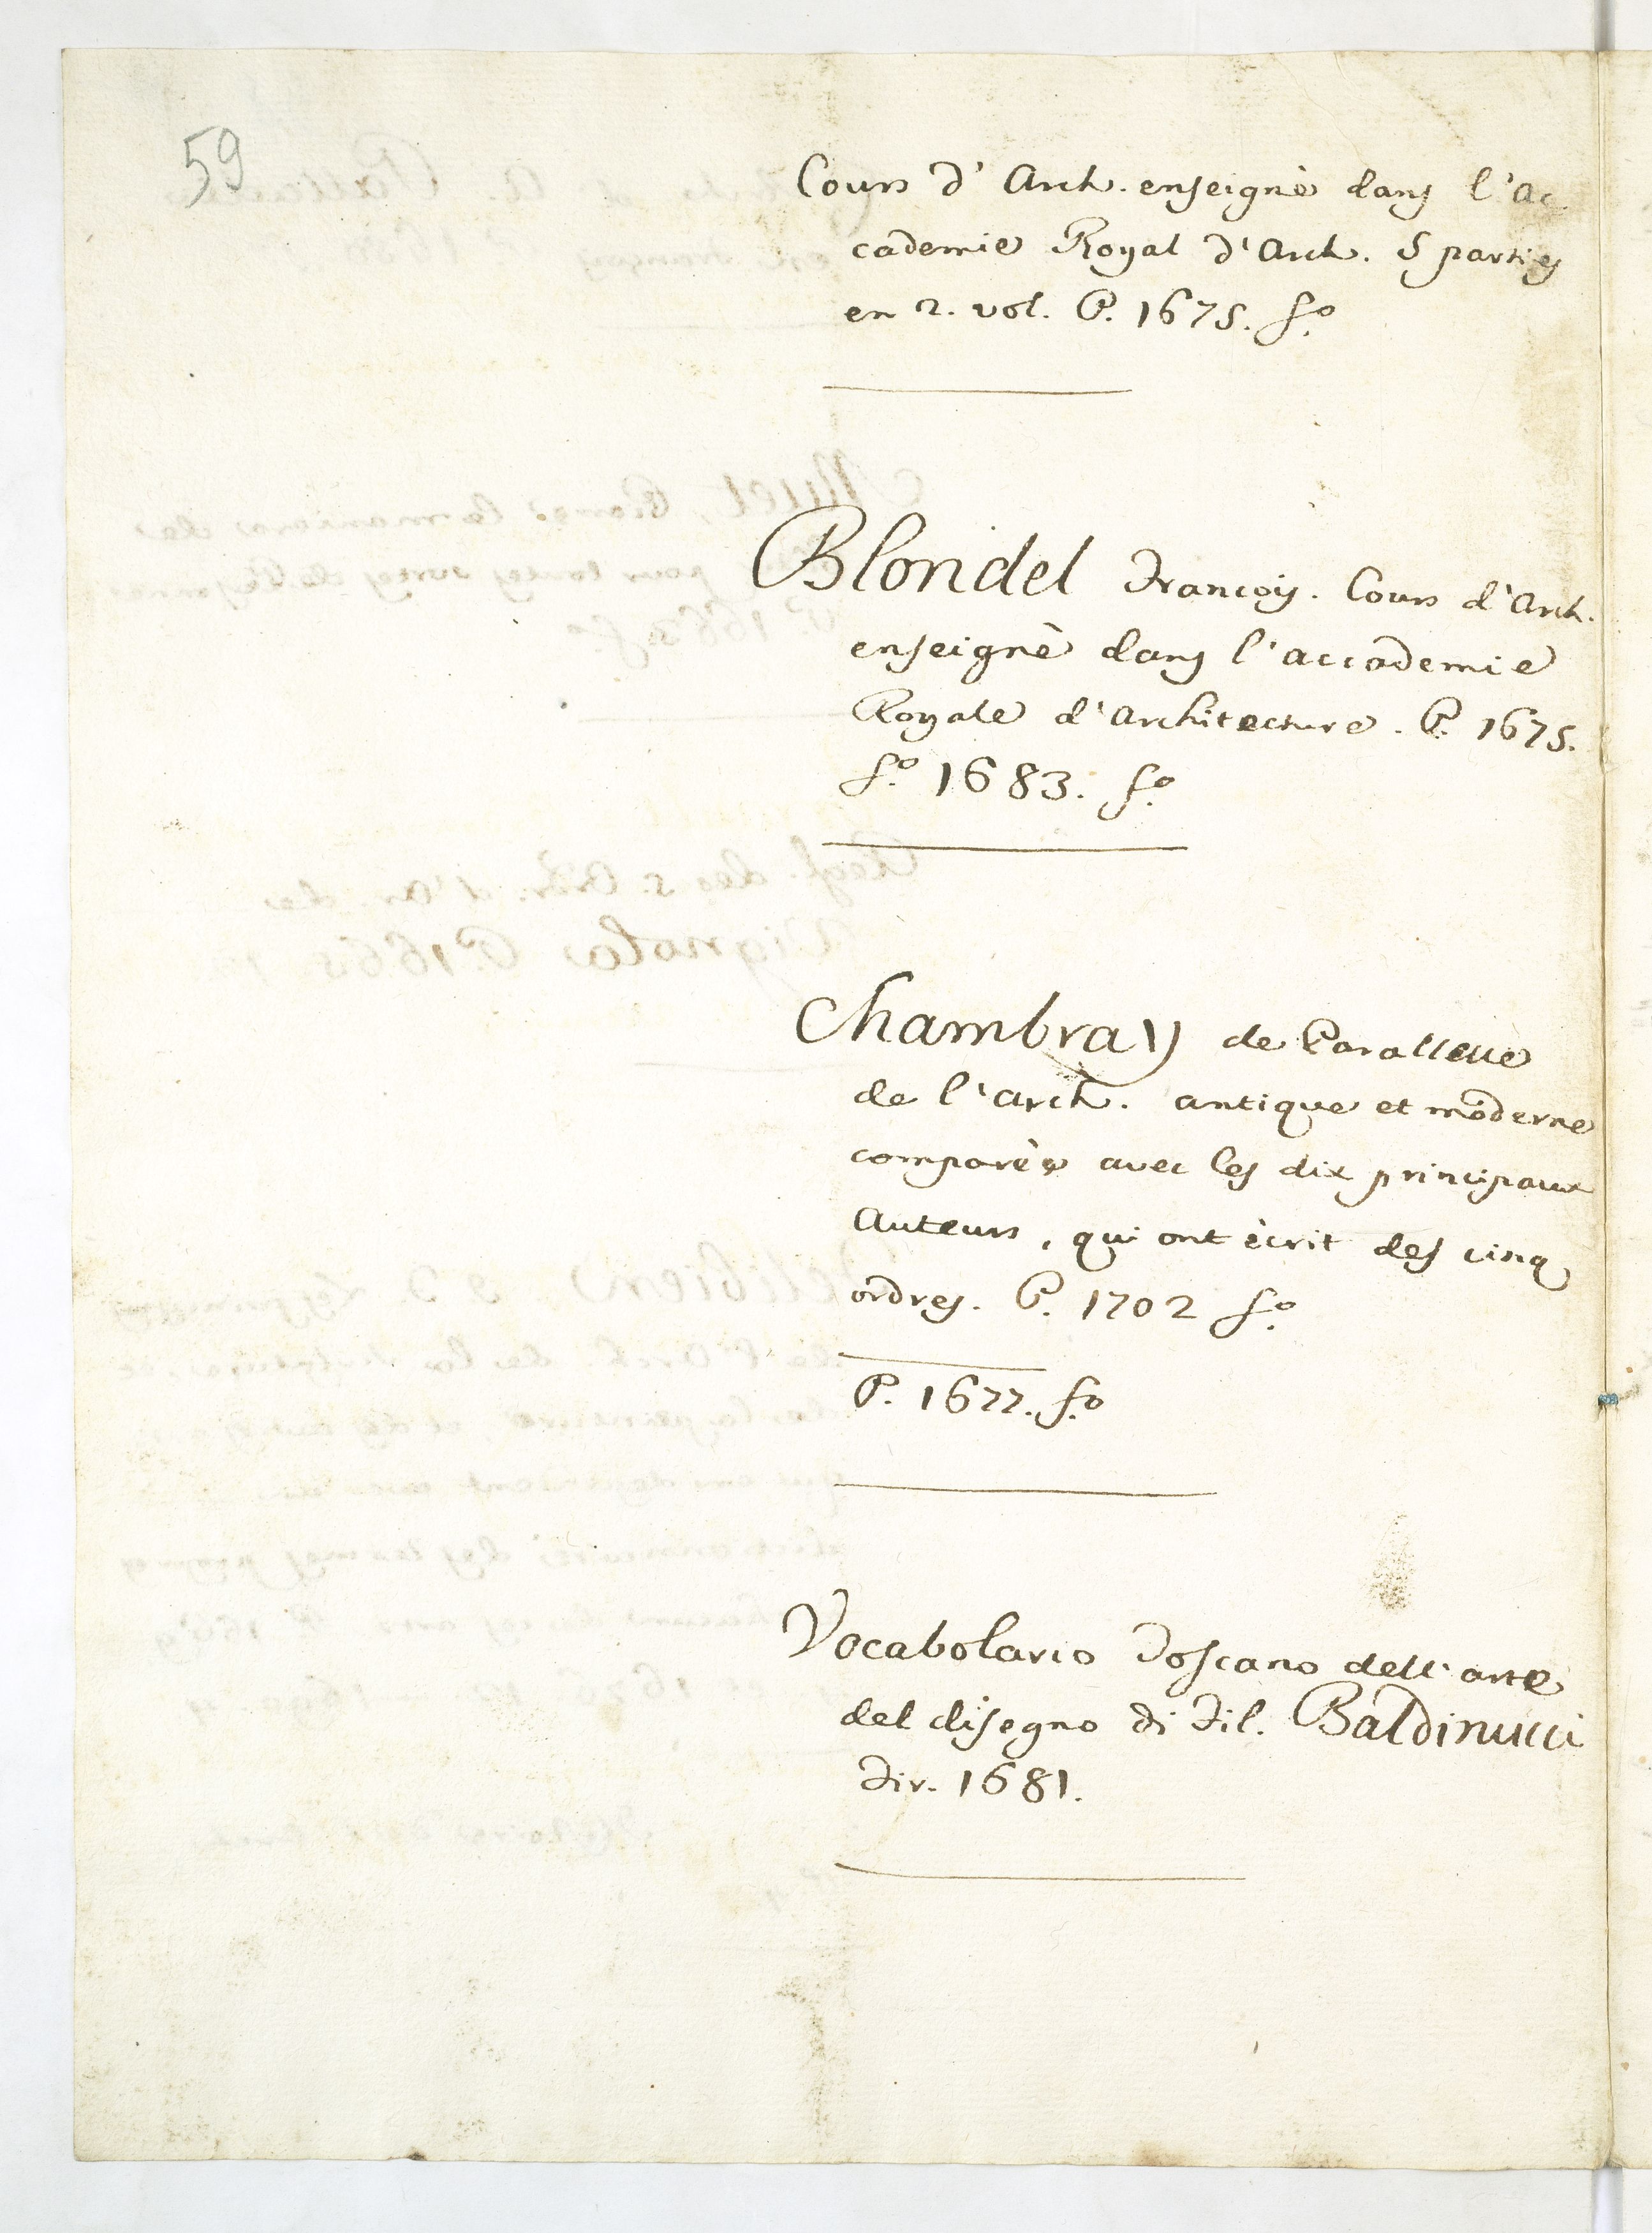 59
Cours d' Arch. enseignè dans l'Ac
cademie Royal d'Arch. 5 parties
en 2. vol. P. 1675. f.o
Blondel Francois. Cours d'Arch.
enseignè dans l'accademie
Royale d'Architecture. P. 1675.
f.o 1683. f.o
Chambray de Parallelle
de l'arch. antique et moderne
comparèe avec les dix principaux
Auteurs, qui ont ècrit des cinq
ordres. P. 1702 f.o
P. 1677. f.o
Vocabolario Toscano dell'arte
del disegno di Fil. Baldinucci
Fir. 1681.